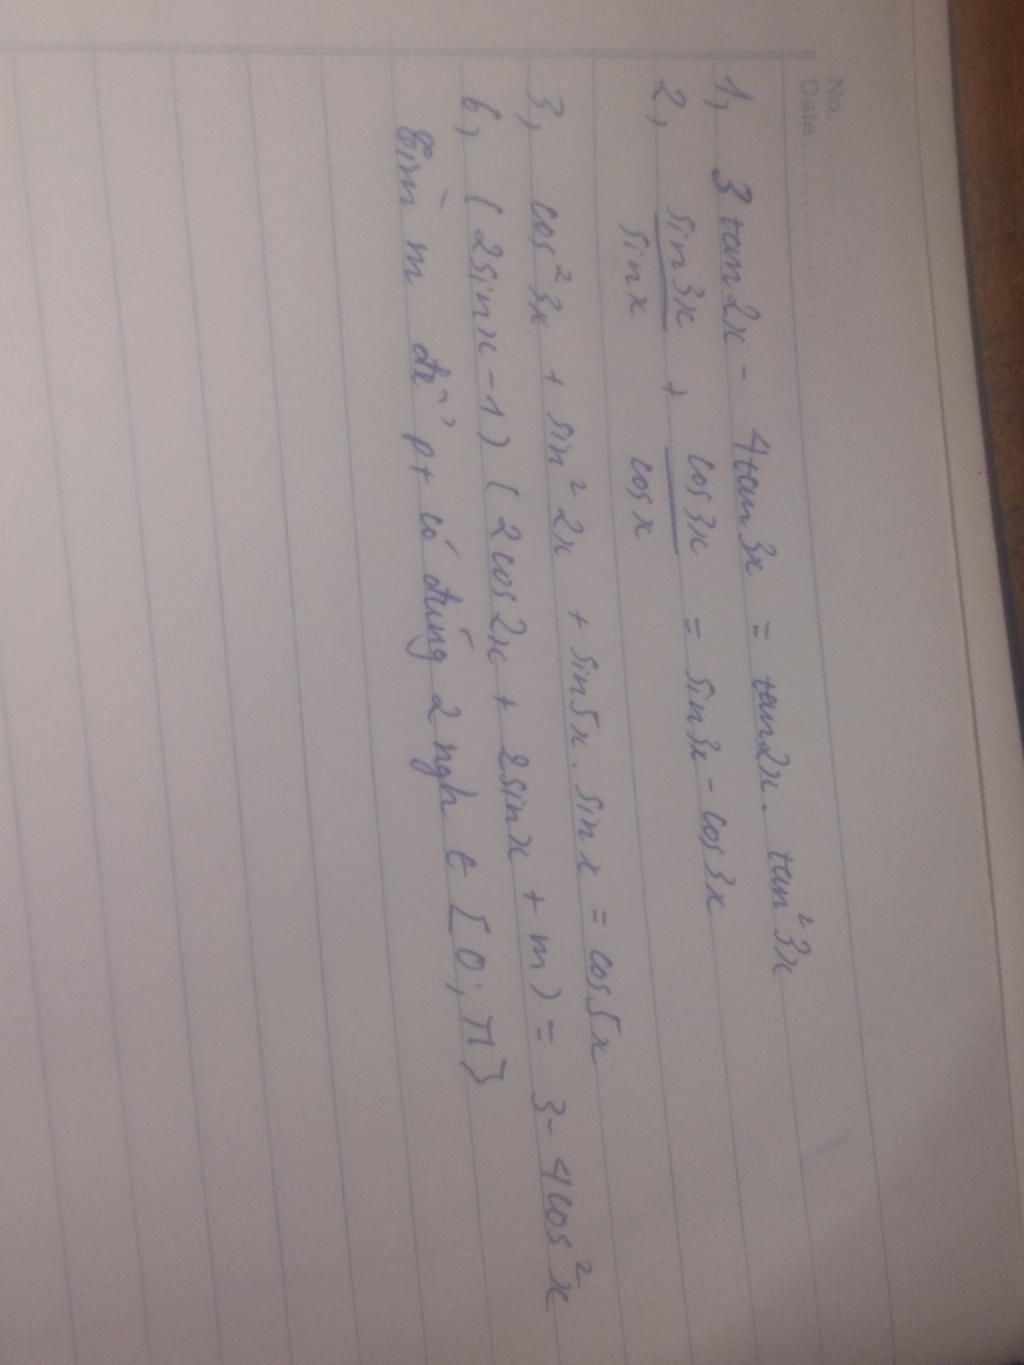 No.
Date
1, 3tan2x - 4tan3x = tan2x. tan²3x
2, sin3x/sinx + cos3x/cosx = sin3x - cos3x
3, cos²3x + sin²2x + sin5x. sinx = cos5x
6, (2sinx-1)(2cos2x + 2sinx + m) = 3-4cos²x
Tìm m để pt có đúng 2 ngh ∈ [0; π]